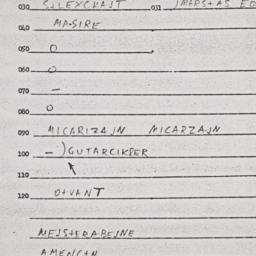 030 SILEXCKAJT 031
040 MASIRE
050 O
060 O
070 —
080 O
090 MICARIZAJN MICARZAJN
100 —) GUTARCIKSER
110
120 OTVANT
MEJSTERABEJNE
AMENCTN